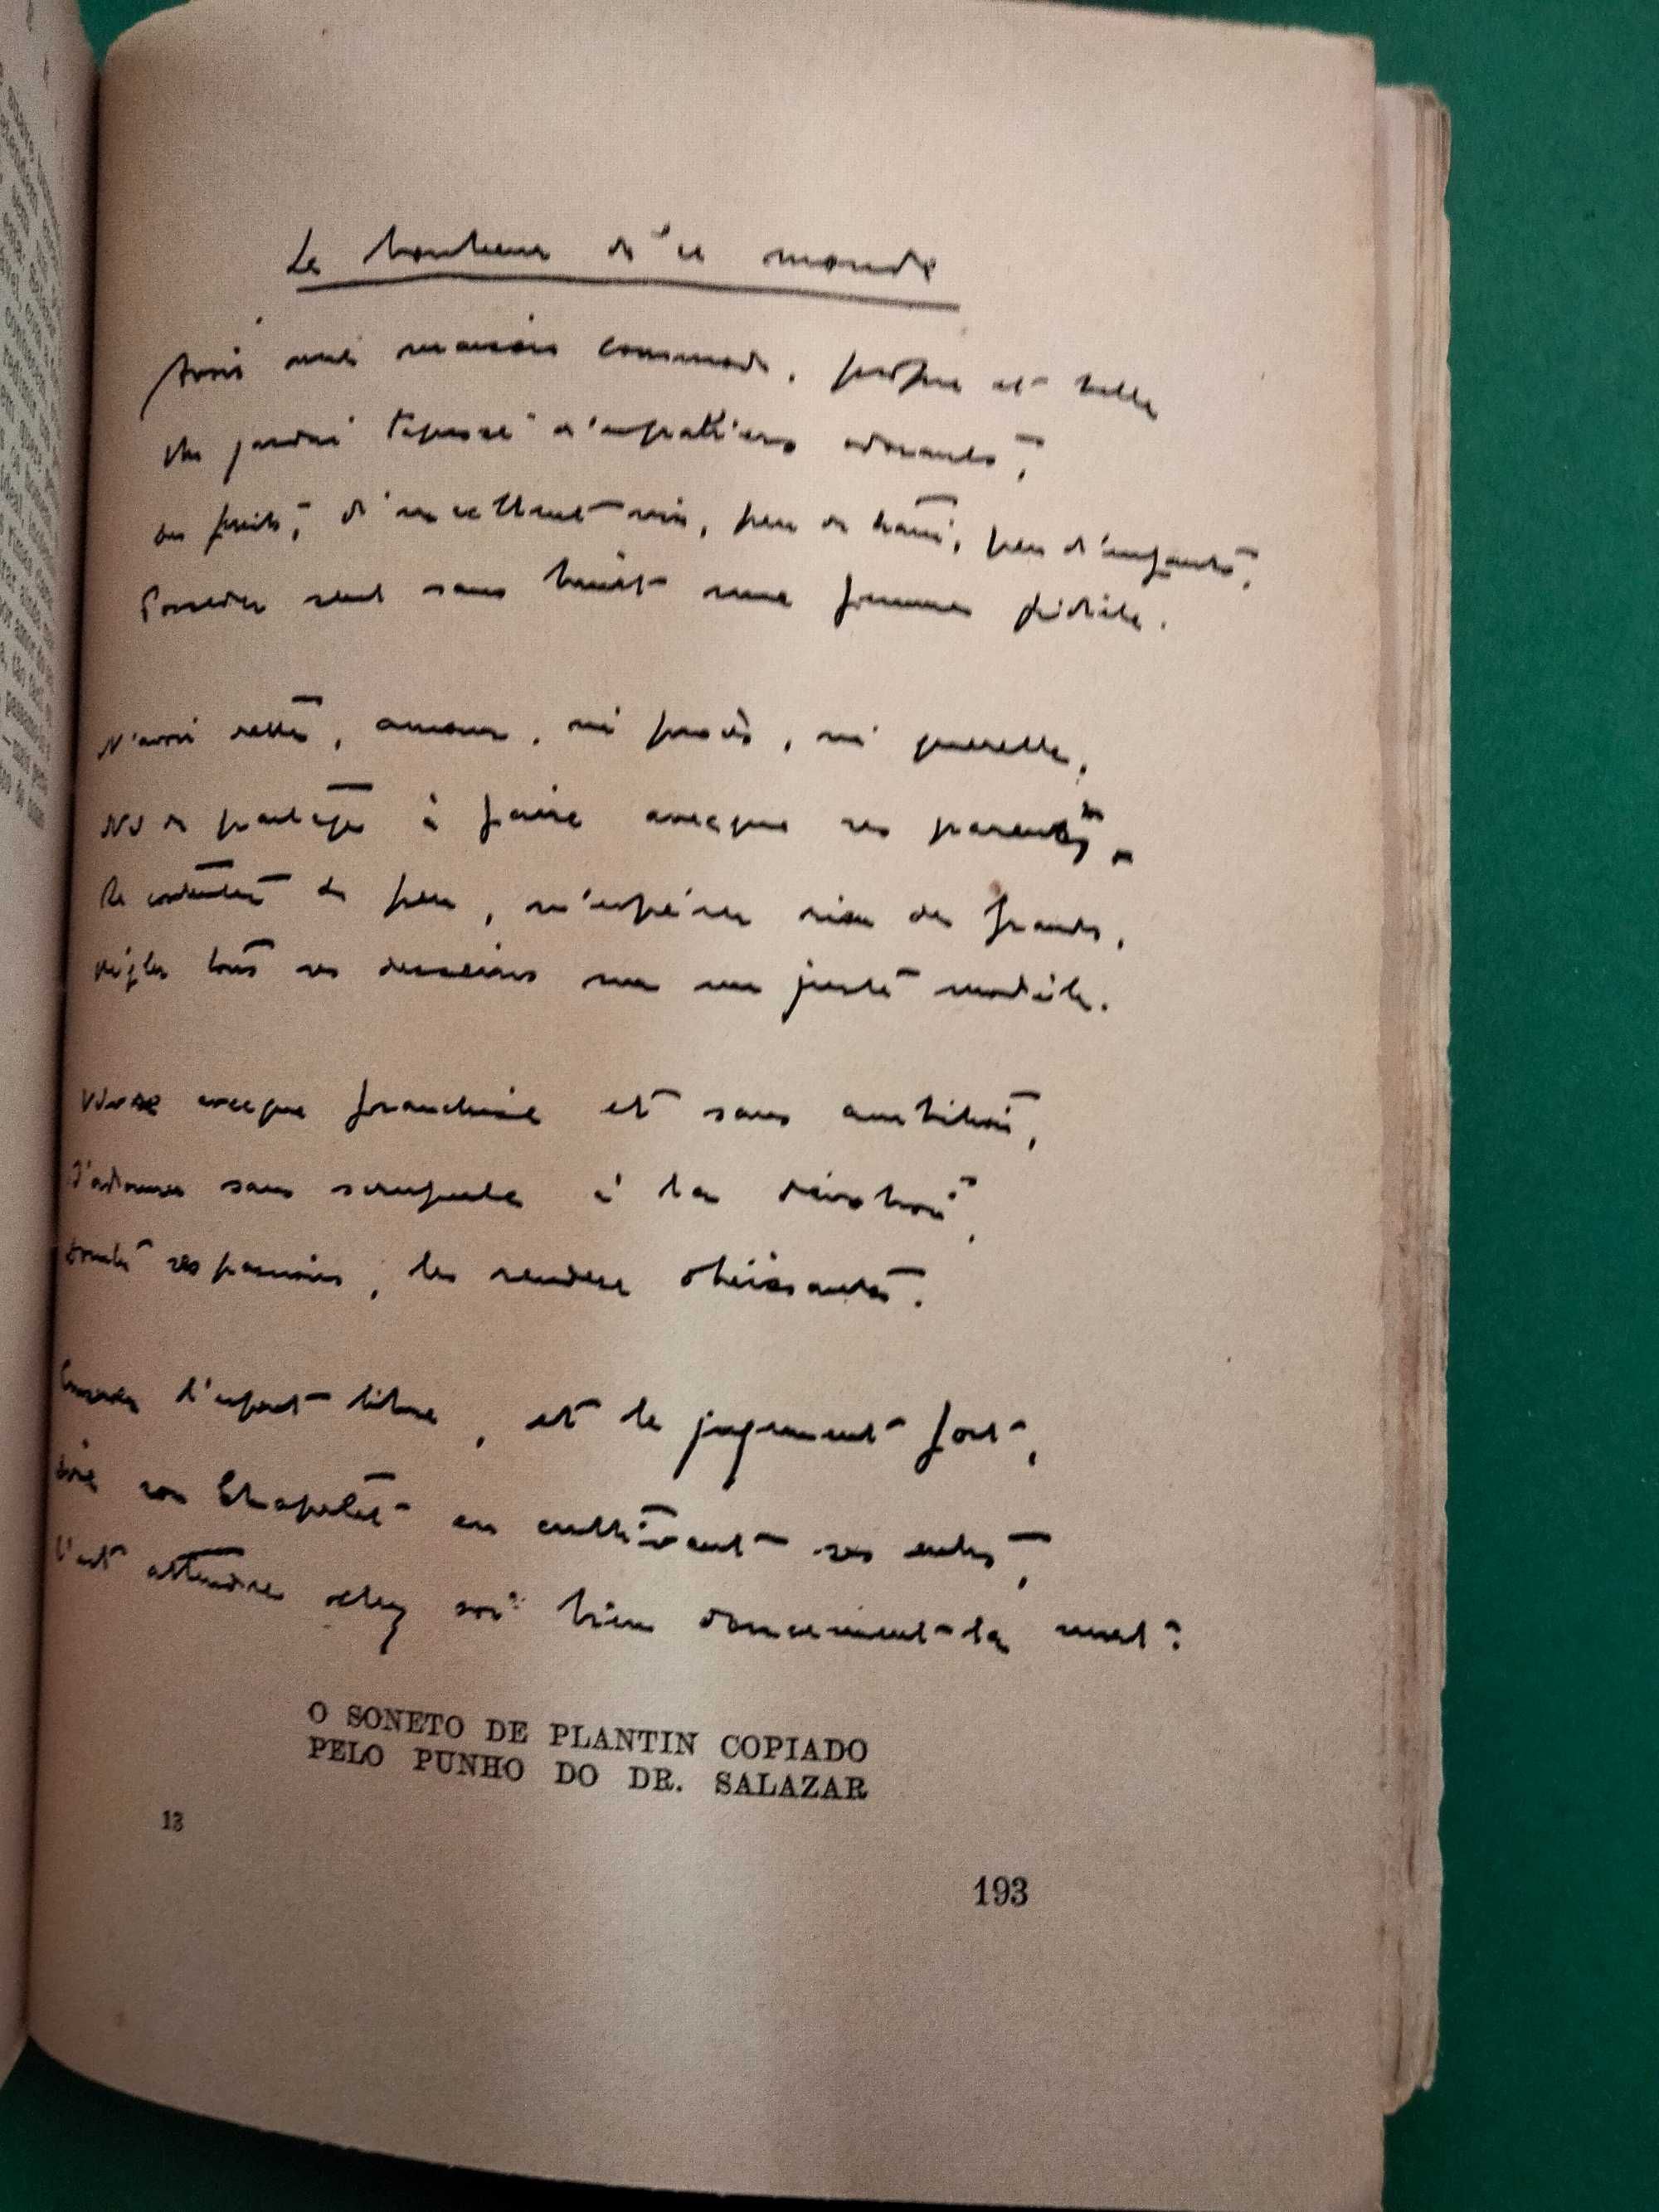 Le bonheur de ce monde
Avoir une maison commode, propre et belle
Un jardin tapissé d'espaliers odorants,
des fruits, d'excellent vin, peu de train, peu d'enfants,
Posséder seul sans bruit une femme fidèle.
N'avoir dettes, amour, ni procès, ni querelle,
Ni de partage à faire avecque ses parents,
Se contenter de peu, n'espérer rien des Grands,
Régler tous ses desseins sur un juste modèle.
Vivre avecque franchise et sans ambition,
S'adonner sans scrupule à la dévotion,
Dompter ses passions, les rendre obéissantes.
Conserver l'esprit libre, et le jugement fort,
Dire son Chapelet en cultivant ses entes,
C'est attendre chez soi bien doucement la mort.
O SONETO DE PLANTIN COPIADO
PELO PUNHO DO DR. SALAZAR
13
193